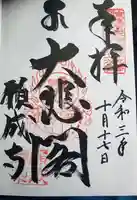 奉拝
令和三年
十月十七日
大悲閣
願成寺